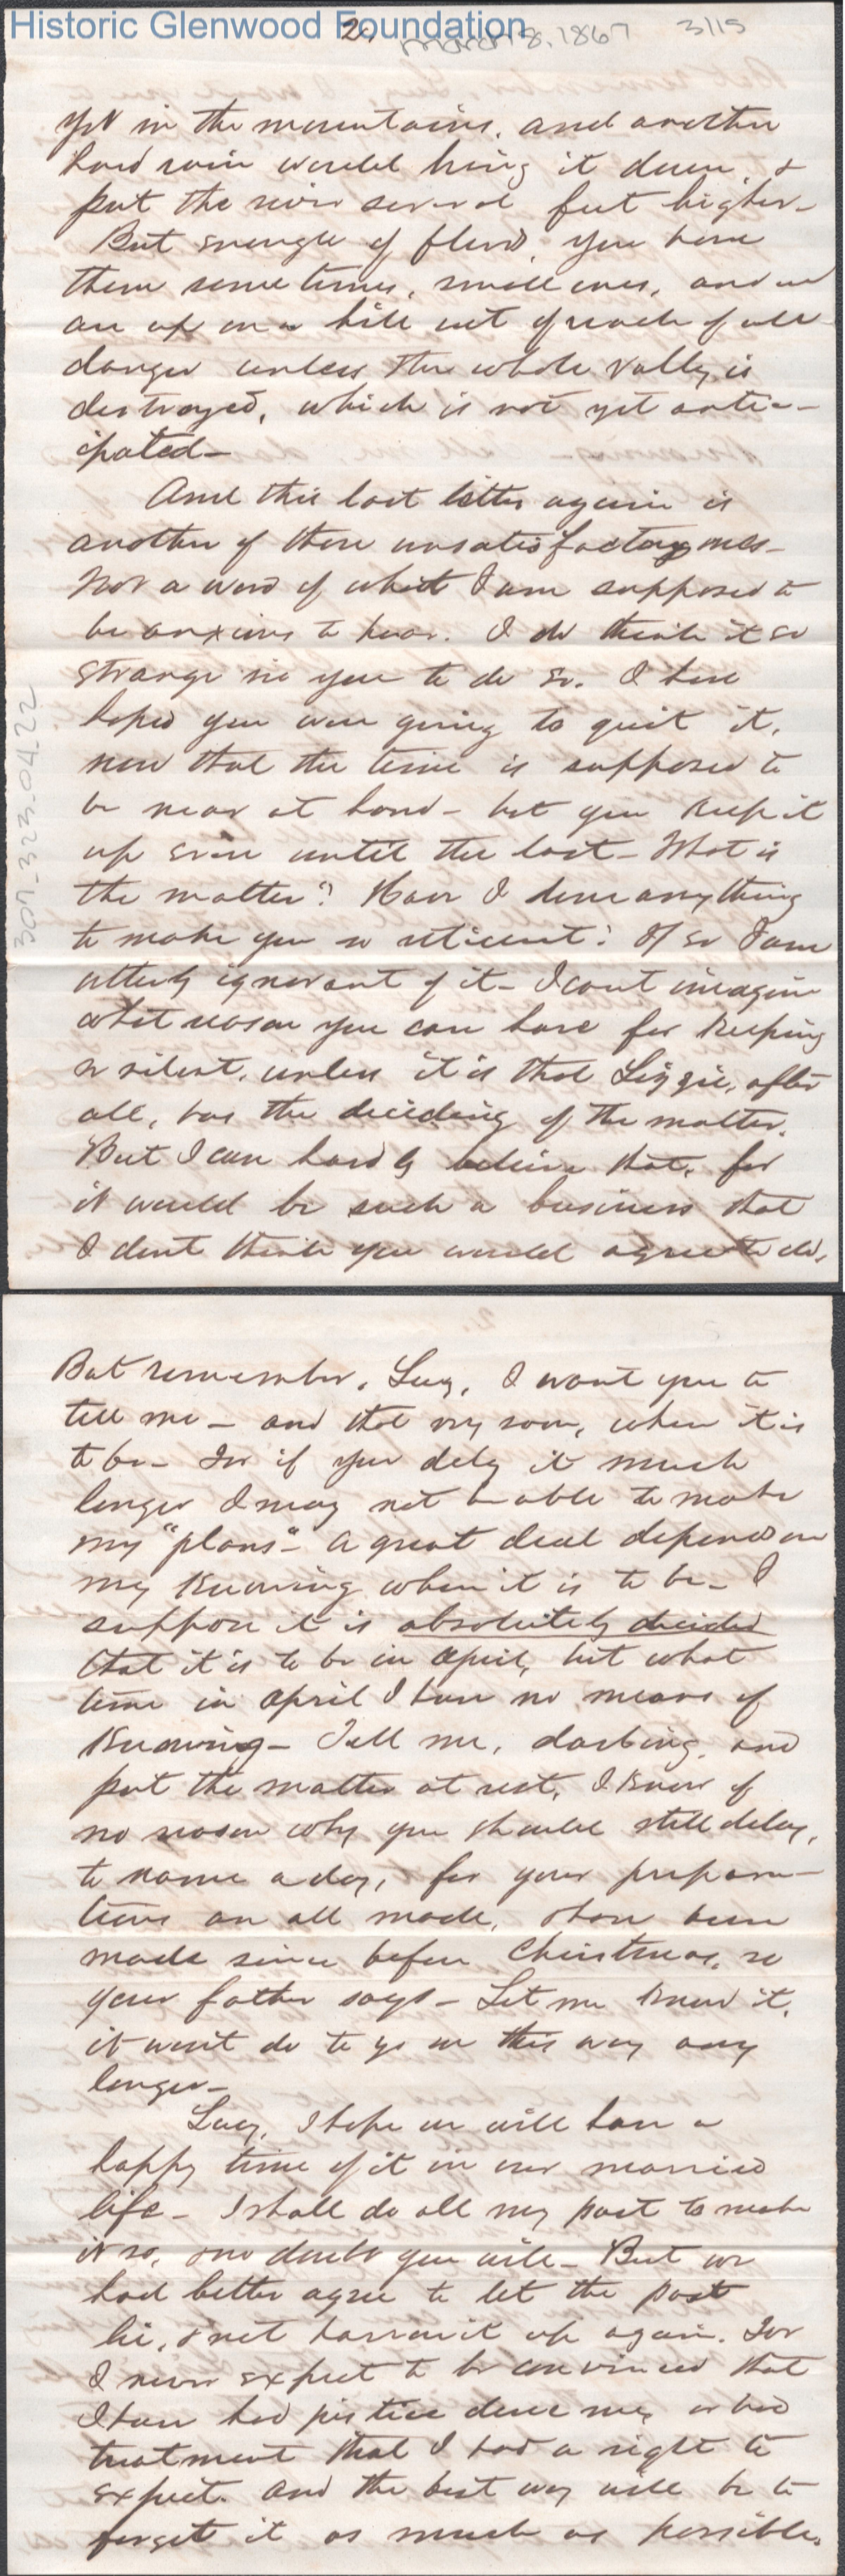 Historic Glenwood Foundation
2.
March 8, 1867
3/15
307_323.04.22
yet in the mountains, and another
hard rain would bring it down, &
put the river several feet higher-
But enough of flood, you have
them sometimes, small ones, and we
are up on a hill out of reach of all
danger unless the whole valley is
destroyed, which is not yet antic-
ipated-
And this last letter again is
another of those unsatisfactory ones-
Not a word of what I am supposed to
be anxious to hear. I do think it so
strange in you to do so. I have
hoped you were going to quit it,
now that the time is supposed to
be near at hand- but you keep it
up even until the last- What is
the matter? Have I done anything
to make you so reticent? If so I am
utterly ignorant of it- I cant imagine
what reason you can have for keeping
so silent, unless it is that Lizzie, after
all, has the deciding of the matter.
But I can hardly believe that, for
it would be such a business that
I dont think you would agree to do,
But remember, Lucy, I want you to
tell me- and that very soon, when it is
to be- For if you delay it much
longer I may not be able to make
my "plans"- A great deal depends on
my knowing when it is to be- I
suppose it is absolutely decided
that it is to be in April, but what
time in April I have no means of
knowing- Tell me, darling, and
put the matter at rest, I know of
no reason why you should still delay,
to name a day, for your prepara-
tions are all made, & have been
made since before Christmas, so
your father says- Let me know it,
it wont do to go on this way any
longer-
Lucy, I hope we will have a
happy time of it in our married
life- I shall do all my part to make
it so, & no doubt you will- But we
had better agree to let the past
lie, & not harrow it up again. For
I never expect to be convinced that
I have had justice done me, or had
treatment that I had a right to
expect. And the best way will be to
forget it as much as possible.